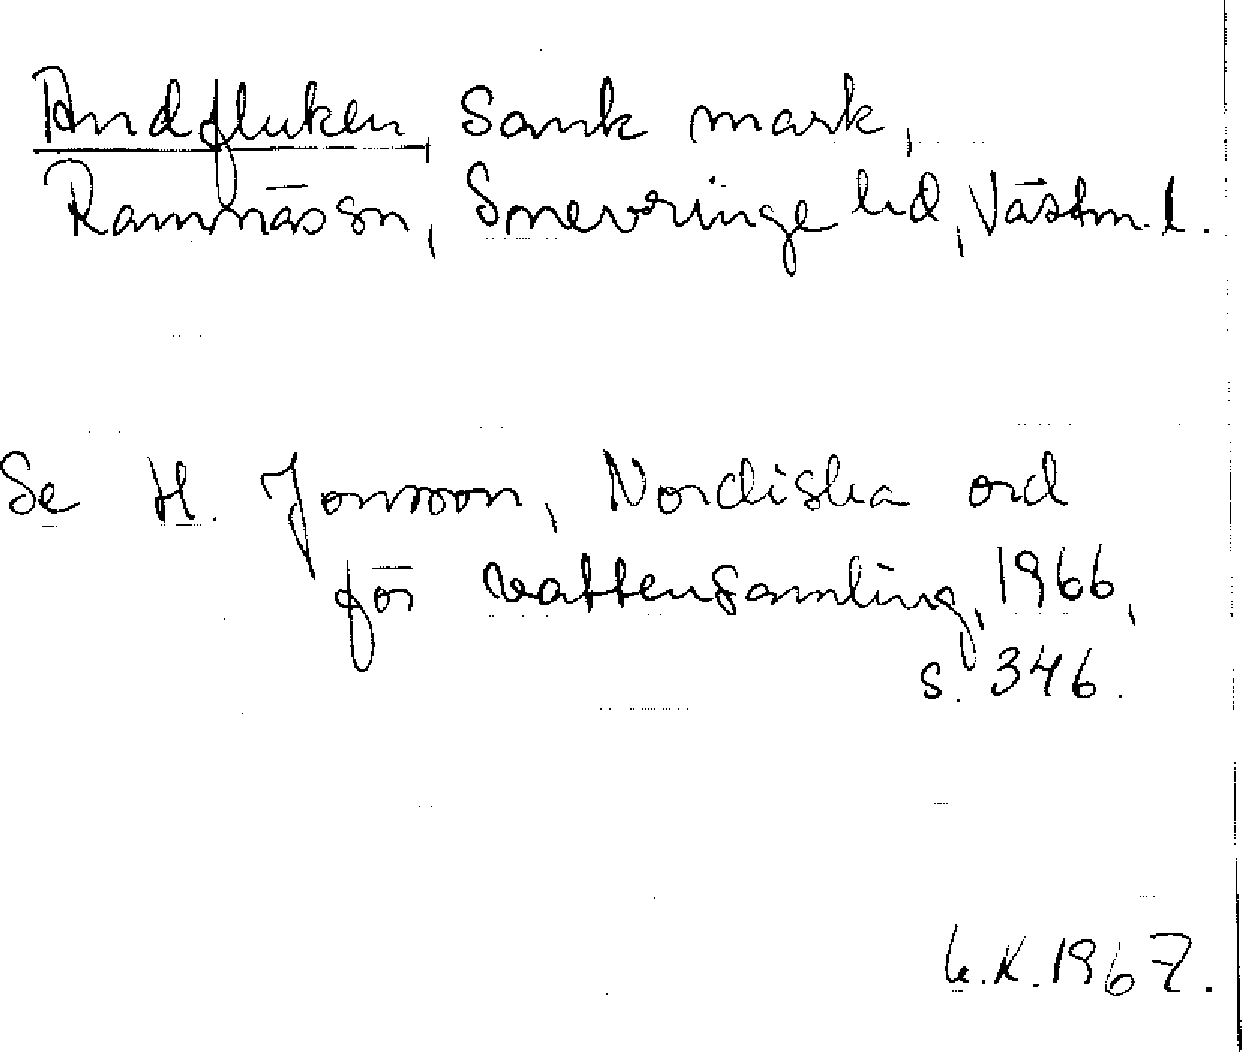 Andfluken, Sank mark,
Ramnäs sn, Snevringe hd, Västm. l.
Se H. Jonsson, Nordiska ord
för vattensamling, 1966,
s. 346.
K. 1967.